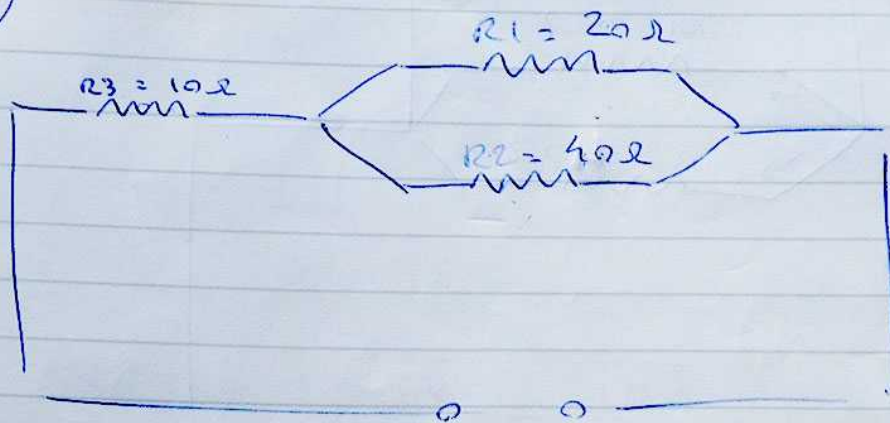 R1 = 20 Ω
R3 = 10 Ω
R2 = 40 Ω